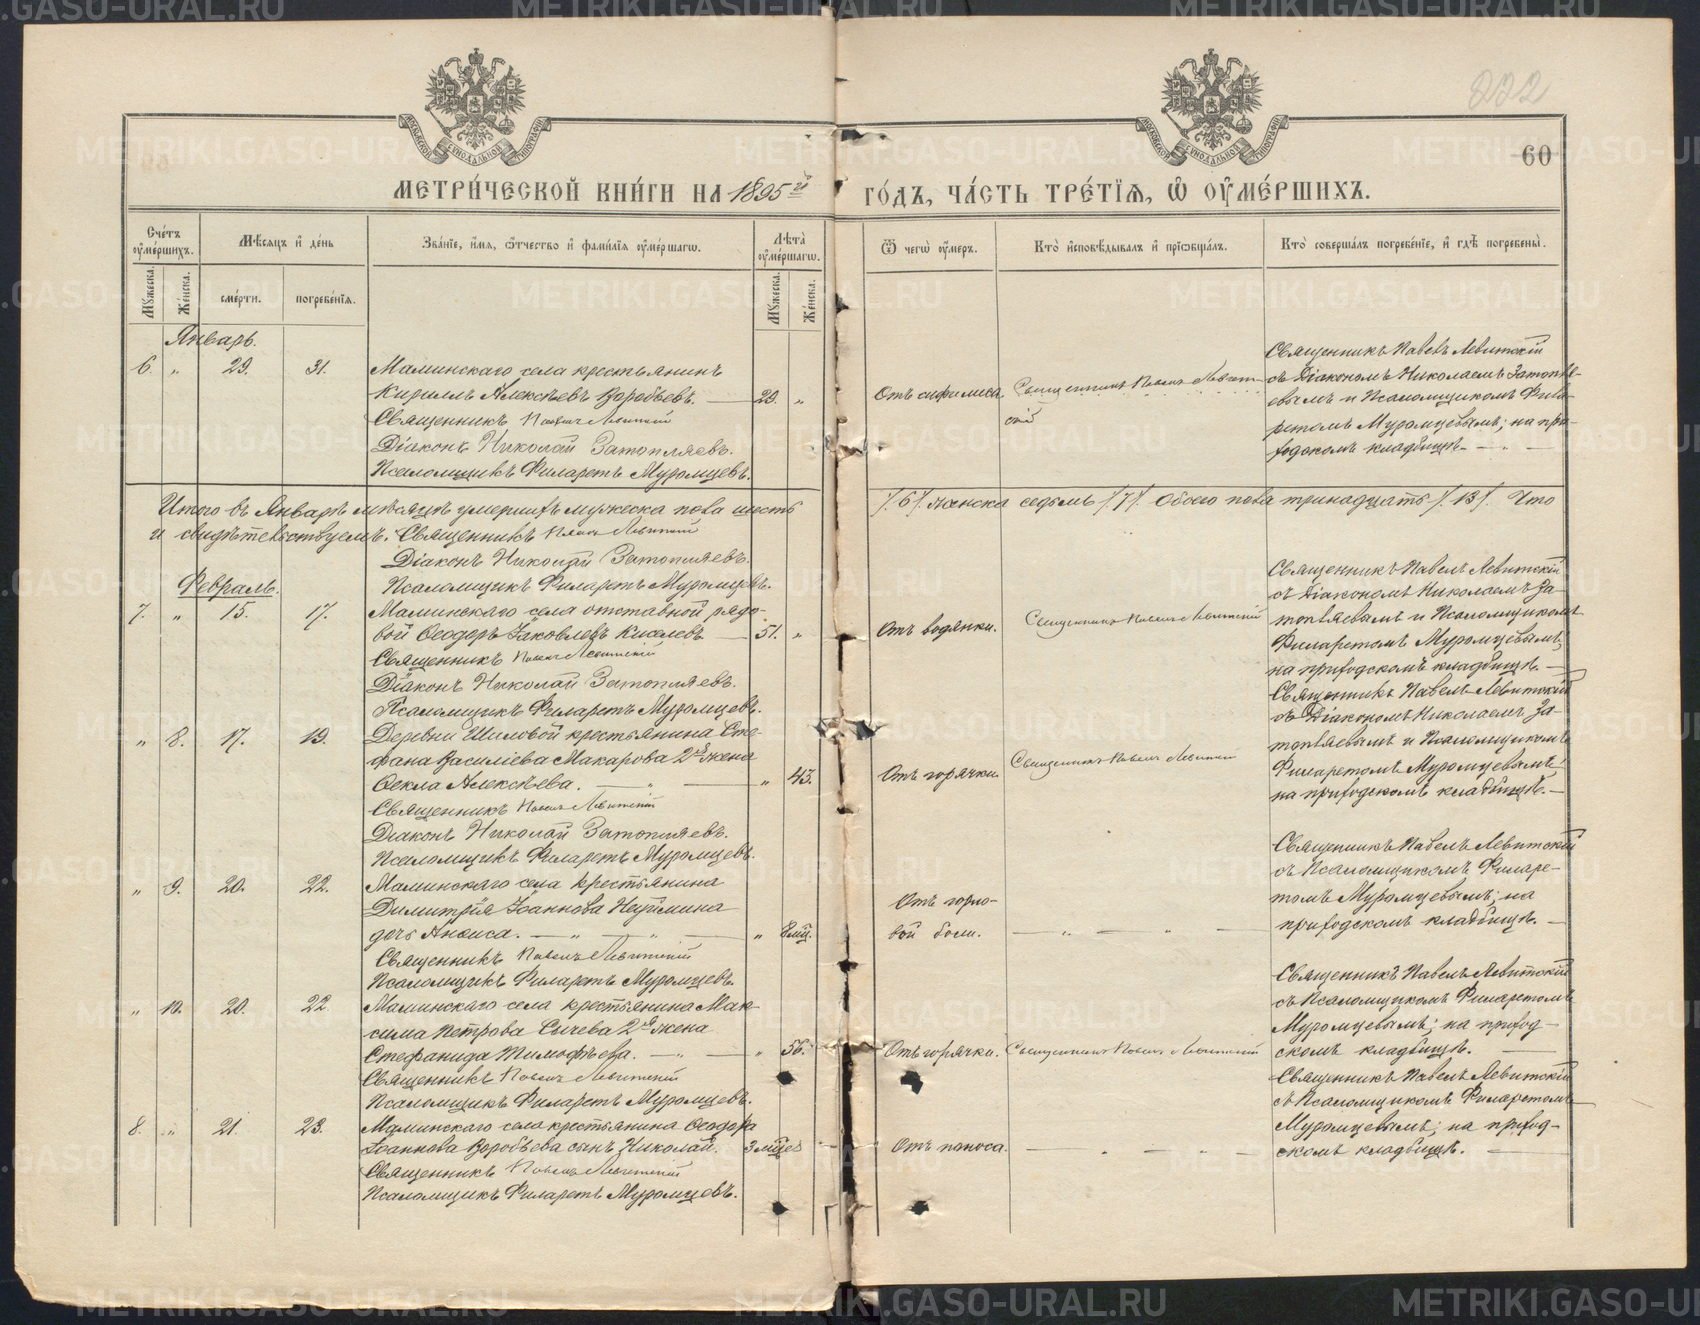 222
60
МЕТРИ́ЧЕСКОЙ КНИ́ГИ НА 1895й ГО́ДЪ, ЧА́СТЬ ТРЕ́ТІѦ, Ѡ҆ ОУ҆МЕ́РШИХЪ.
Сче́тъ оу҆ме́ршихъ.
Мѣ́сяцъ и҆ де́нь
Зва́нїе, и҆́мя, ѻ҆́тчество и҆ фами́лїя оу҆ме́ршагѡ.
Лѣ́та оу҆ме́ршагѡ.
Ѿ чегѡ̀ оу҆́меръ.
Кто̀ и҆сповѣ́дывалъ и҆ прїѡбща́лъ.
Кто̀ соверша́лъ погребе́нїе, и҆ гдѣ̀ погребены̀.
Мꙋ́жеска. Же́нска. сме́рти. погребе́нїя. Мꙋ́жеска. Же́нска.
Январь.
6. " 29. 31. Маминскаго села крестьянинъ
Кириллъ Алексѣевъ Воробьевъ. — 29. "
Священникъ Павелъ Левитскій
Діаконъ Николай Затопляевъ.
Псаломщикъ Филаретъ Муромцевъ.
Отъ сифилиса.
Священникъ Павелъ Левит-
скій
Священникъ Павелъ Левитскій
съ Діакономъ Николаемъ Затопля-
евымъ и Псаломщикомъ Фила-
ретомъ Муромцевымъ; на при-
ходскомъ кладбищѣ. —
Итого въ Январѣ мѣсяцѣ умершихъ мужеска пола шесть /.6/. женска седьмь /.7/. Обоего пола тринадцать /.13/. Что
и свидѣтельствуемъ. Священникъ Павелъ Левитскій
Діаконъ Николай Затопляевъ.
Псаломщикъ Филаретъ Муромцевъ.
Февраль.
7. " 15. 17. Маминскаго села отставной рядо-
вой Ѳеодоръ Іаковлевъ Киселевъ — 51. "
Священникъ Павелъ Левитскій
Діаконъ Николай Затопляевъ.
Псаломщикъ Филаретъ Муромцевъ.
Отъ водянки.
Священникъ Павелъ Левитскій
Священникъ Павелъ Левитскій
съ Діакономъ Николаемъ За-
топляевымъ и Псаломщикомъ
Филаретомъ Муромцевымъ;
на приходскомъ кладбищѣ. —
" 8. 17. 19. Деревни Шиловой крестьянина Сте-
фана Василіева Макарова 2я жена
Ѳекла Алексѣева. — " — " 43.
Священникъ Павелъ Левитскій
Діаконъ Николай Затопляевъ.
Псаломщикъ Филаретъ Муромцевъ.
Отъ горячки.
Священникъ Павелъ Левитскій
Священникъ Павелъ Левитскій
съ Діакономъ Николаемъ За-
топляевымъ и Псаломщикомъ
Филаретомъ Муромцевымъ;
на приходскомъ кладбищѣ. —
" 9. 20. 22. Маминскаго села крестьянина
Димитрія Іоаннова
дочь Анѳиса. — " — " — " 8 мц.
Священникъ Павелъ Левитскій
Псаломщикъ Филаретъ Муромцевъ.
Отъ горло-
вой боли.
— " — " —
Священникъ Павелъ Левитскій
съ Псаломщикомъ Филаре-
томъ Муромцевымъ; на
приходскомъ кладбищѣ. —
" 10. 20. 22. Маминскаго села крестьянина Мак-
сима Петрова Сычева 2я жена
Стефанида Тимоѳѣева. — " — " 56.
Священникъ Павелъ Левитскій
Псаломщикъ Филаретъ Муромцевъ.
Отъ горячки.
Священникъ Павелъ Левитскій
Священникъ Павелъ Левитскій
съ Псаломщикомъ Филаретомъ
Муромцевымъ; на приход-
скомъ кладбищѣ. —
8. " 21. 23. Маминскаго села крестьянина Ѳеодора
Іоаннова Воробьева сынъ Николай. 3 мцев
Священникъ Павелъ Левитскій
Псаломщикъ Филаретъ Муромцевъ.
Отъ поноса.
— " — " —
Священникъ Павелъ Левитскій
съ Псаломщикомъ Филаретомъ
Муромцевымъ; на приход-
скомъ кладбищѣ. —
METRIKI.GASO-URAL.RU